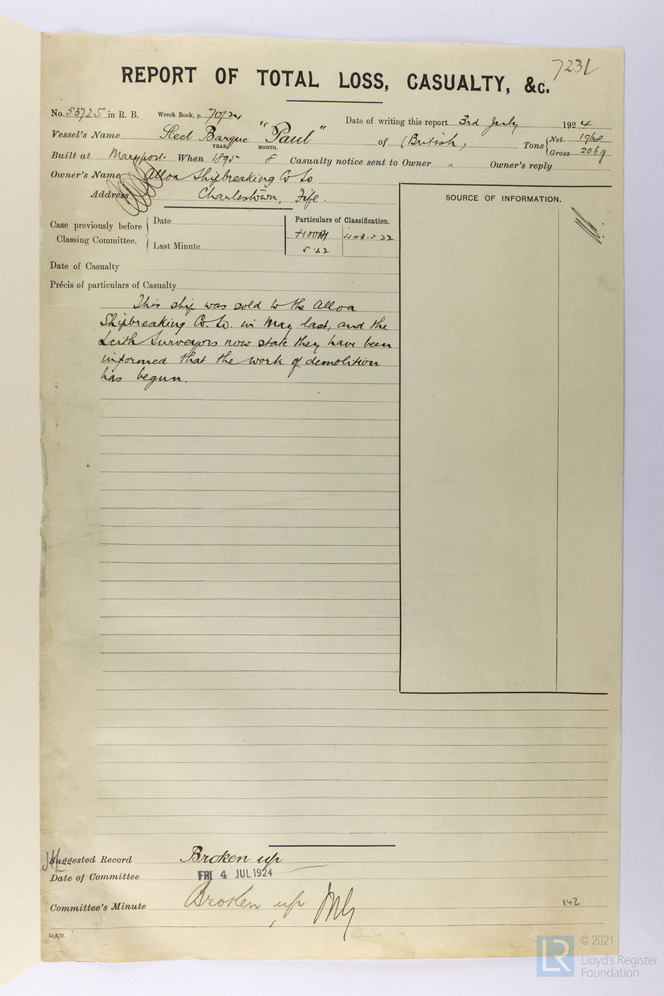 7231
REPORT OF TOTAL LOSS, CASUALTY, &c.
No. 53725 in R. B. Wreck Book, p.
Date of writing this report 3rd July 1924
Vessel's Name Steel Barque "Paul" of (British, Tons Net
Gross 2069
YEAR. MONTH.
Built at Maryport. When 1895 8 Casualty notice sent to Owner Owner's reply
Owner's Name Alloa Shipbreaking Co Lo
Address Charlestown, Fife.
SOURCE OF INFORMATION.
Case previously before Classing Committee. Date
Last Minute
Particulars of Classification.
+100A1
5.22
Date of Casualty
Précis of particulars of Casualty
This ship was sold to the Alloa
Shipbreaking Co. Lo. in May last, and the
Leith Surveyors now state they have been
informed that the work of demolition
has begun.
Suggested Record Broken up
Date of Committee FRI 4 JUL 1924
Committee's Minute Broken up
142
LR © 2021
Lloyd's Register
Foundation